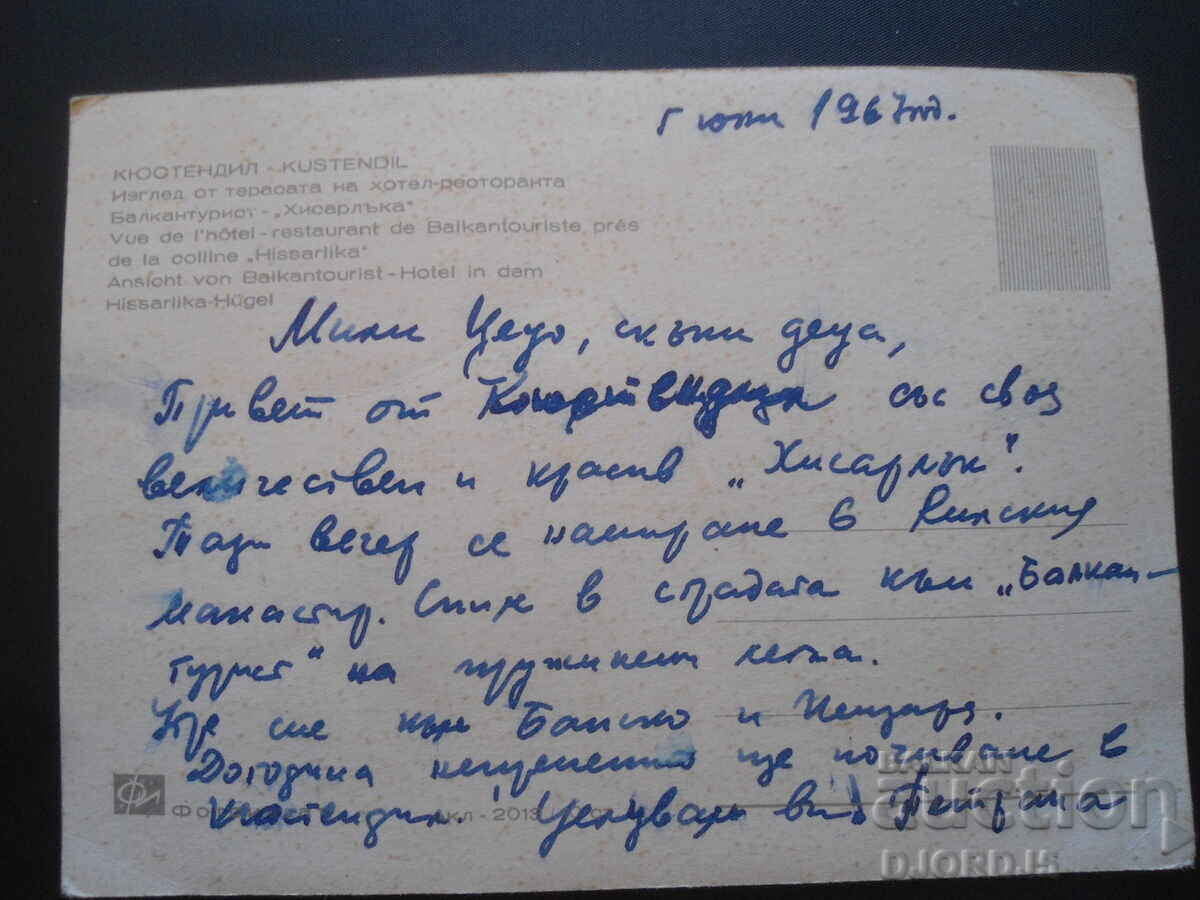 5 юли 1967 год.
КЮСТЕНДИЛ - KUSTENDIL
Изглед от терасата на хотел-ресторанта
Балкантурист - „Хисарлъка"
Vue de l'hôtel - restaurant de Balkantouriste près
de la colline „Hissarlika"
Ansicht von Balkantourist - Hotel in dem
Hissarlika-Hügel
Мили Цецо, скъпи деца,
Привет от Кюстендил със своя
величествен и красив „Хисарлък".
Тази вечер се намираме в Рилския
манастир. Спим в сградата към „Балкан-
турист" на пружинени легла.
Утре сме към Банско и
Догодина непременно ще почиваме в
Кюстендил! Целувам ви!
ФИ
BALKAN
auction
DJORDJ5